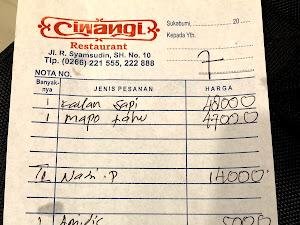 Ciwangi
Restaurant
Jl. R. Syamsudin, SH. No. 10
Tlp. (0266) 221 555, 222 888
Sukabumi, 20
Kepada Yth.
7
NOTA NO.
Banyak-nya JENIS PESANAN HARGA
1 sapi 48000
1 mapo tahu 47000
Nasi .P 14.000